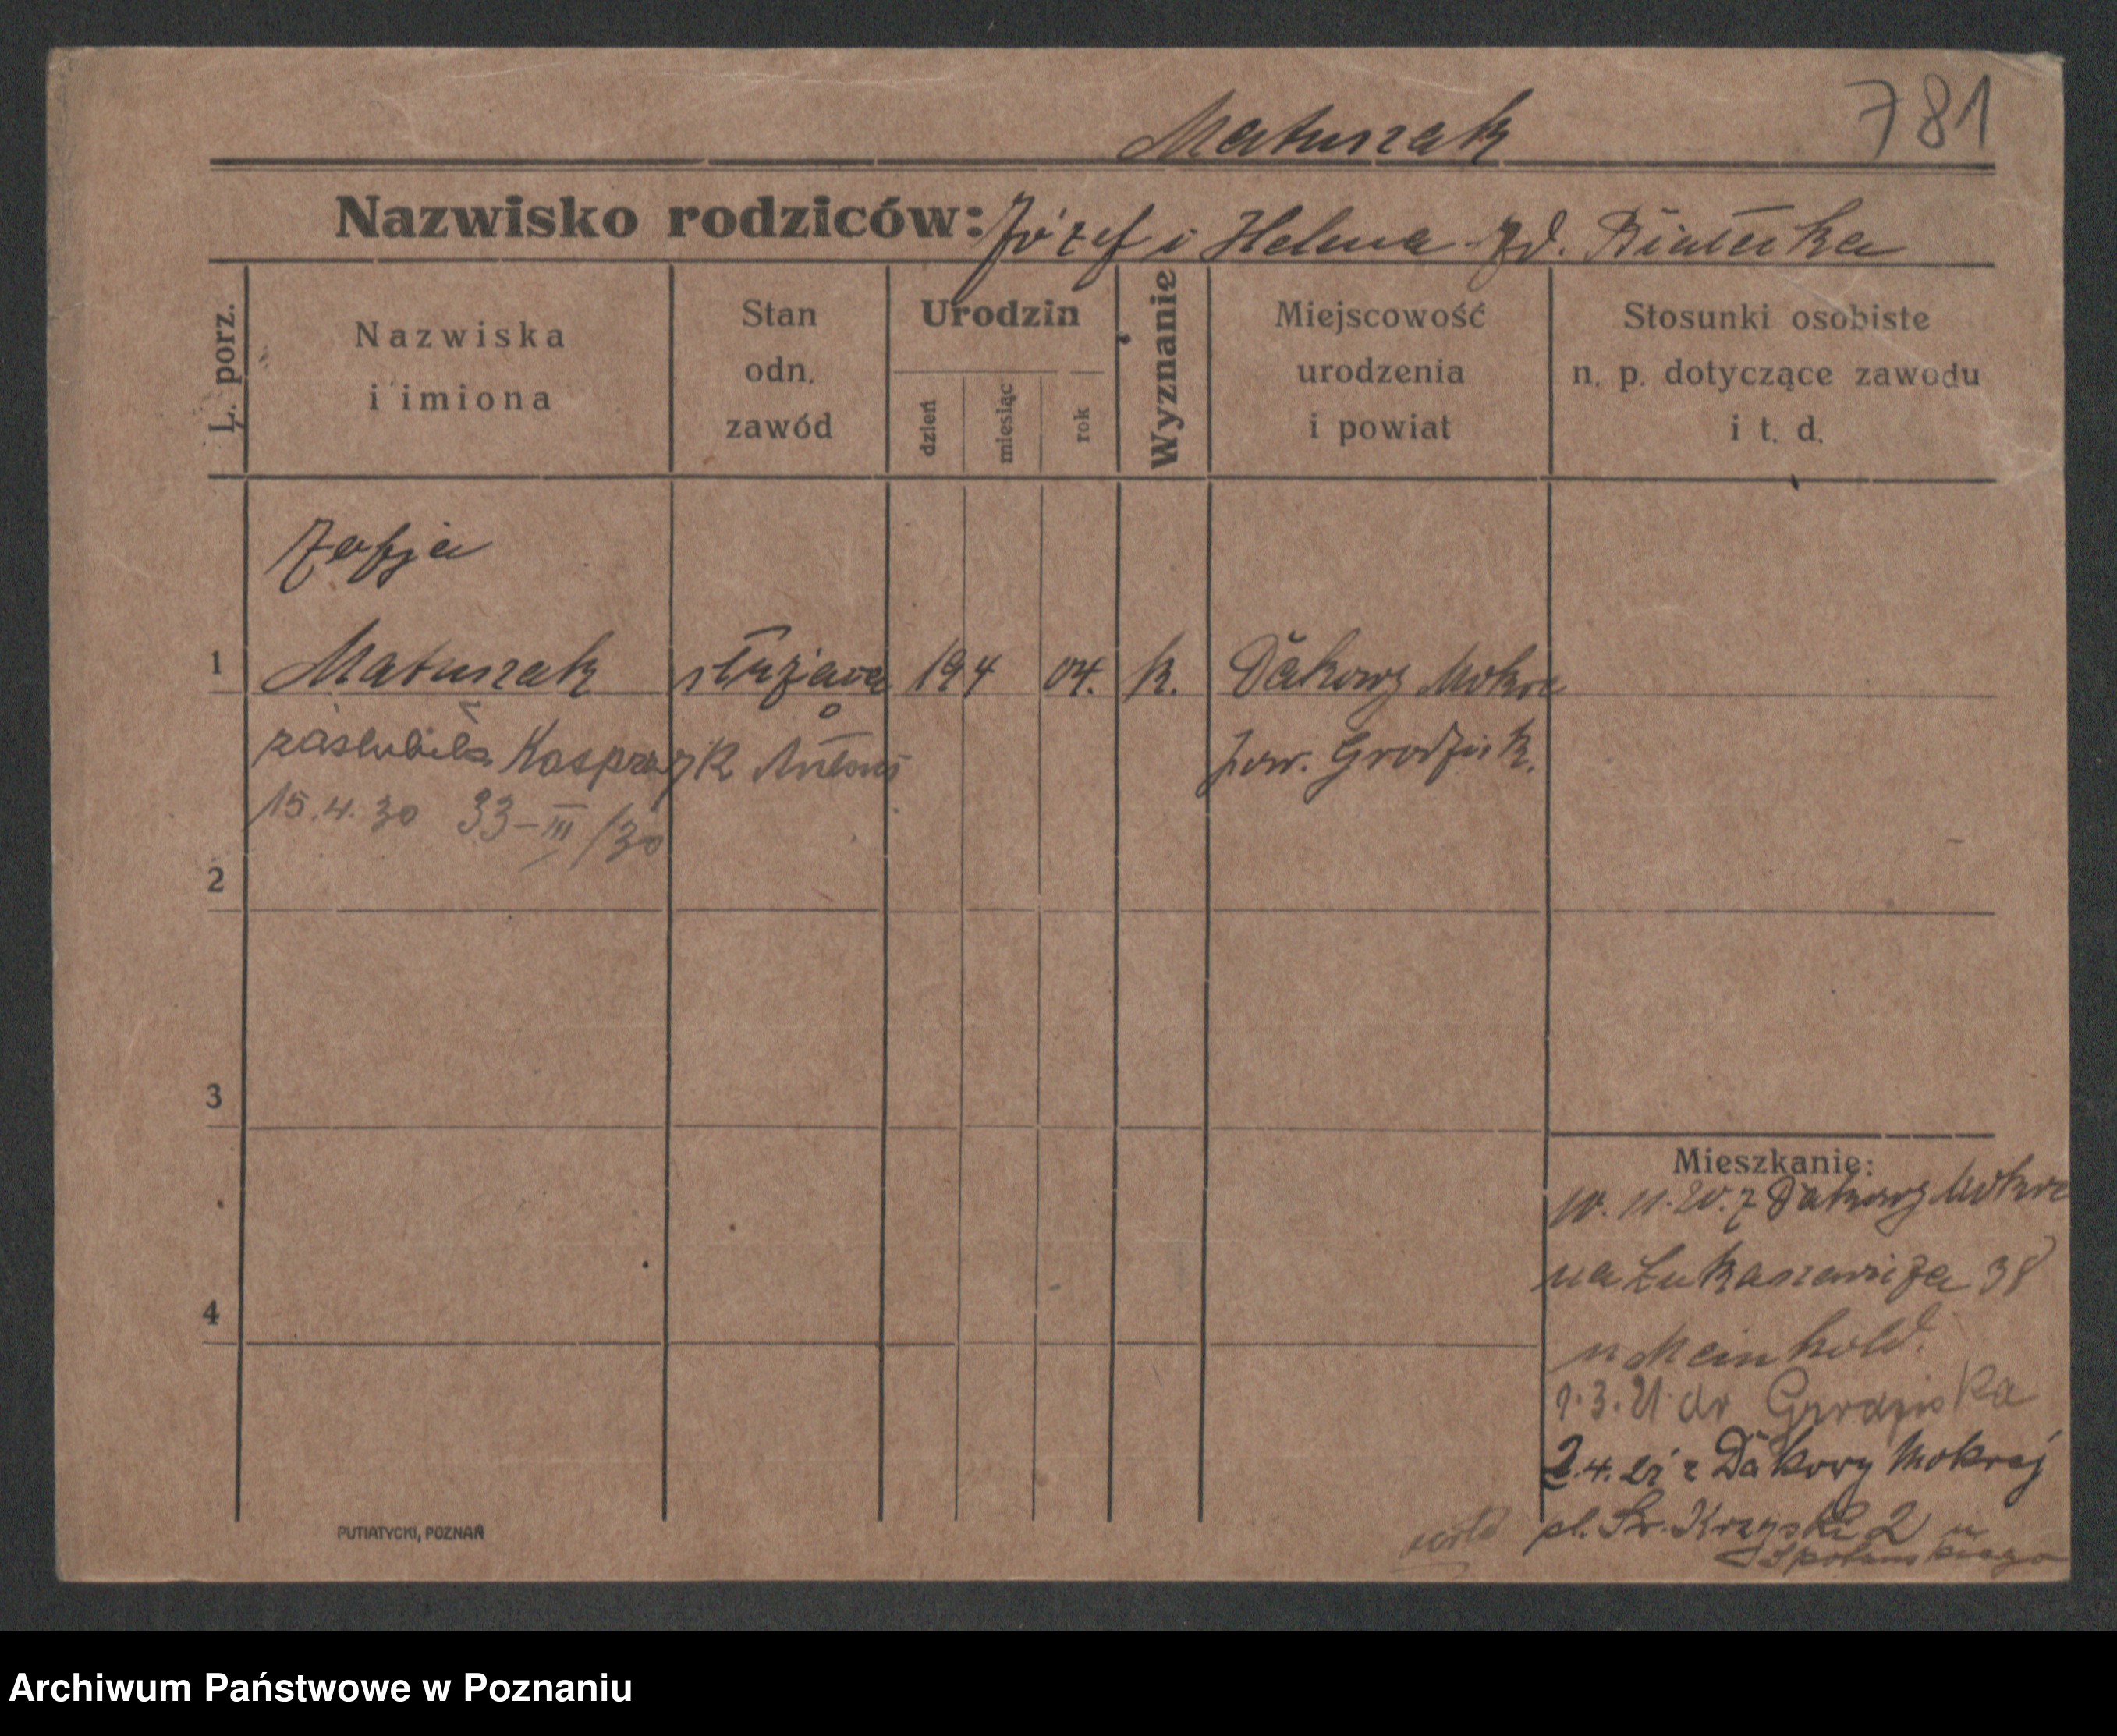 Matuszak 781
Nazwisko rodziców: Józef i Helena zd. Białecka
L. porz.
Nazwiska
i imiona
Stan
odn.
zawód
Urodzin
dzień
miesiąc
rok
Wyznanie
Miejscowość
urodzenia
i powiat
Stosunki osobiste
n. p. dotyczące zawodu
i t. d.
Zofja
1 Matuszak służąca 19 4 04. k. Dakowy Mokre
zaślubiła Kasprzyk Antoni pow. Grodzisk.
15.4.30 33-III/30
2
3
4
Mieszkanie:
10. 11. 20. z Dakowy Mokre
na Łukaszewicza 38
u Meinhold.
1.3.21 do Grodziska
2.4.21 z Dakowy Mokrej
pl. Św. Krzyski 2
u
PUTIATYCKI, POZNAŃ
Archiwum Państwowe w Poznaniu